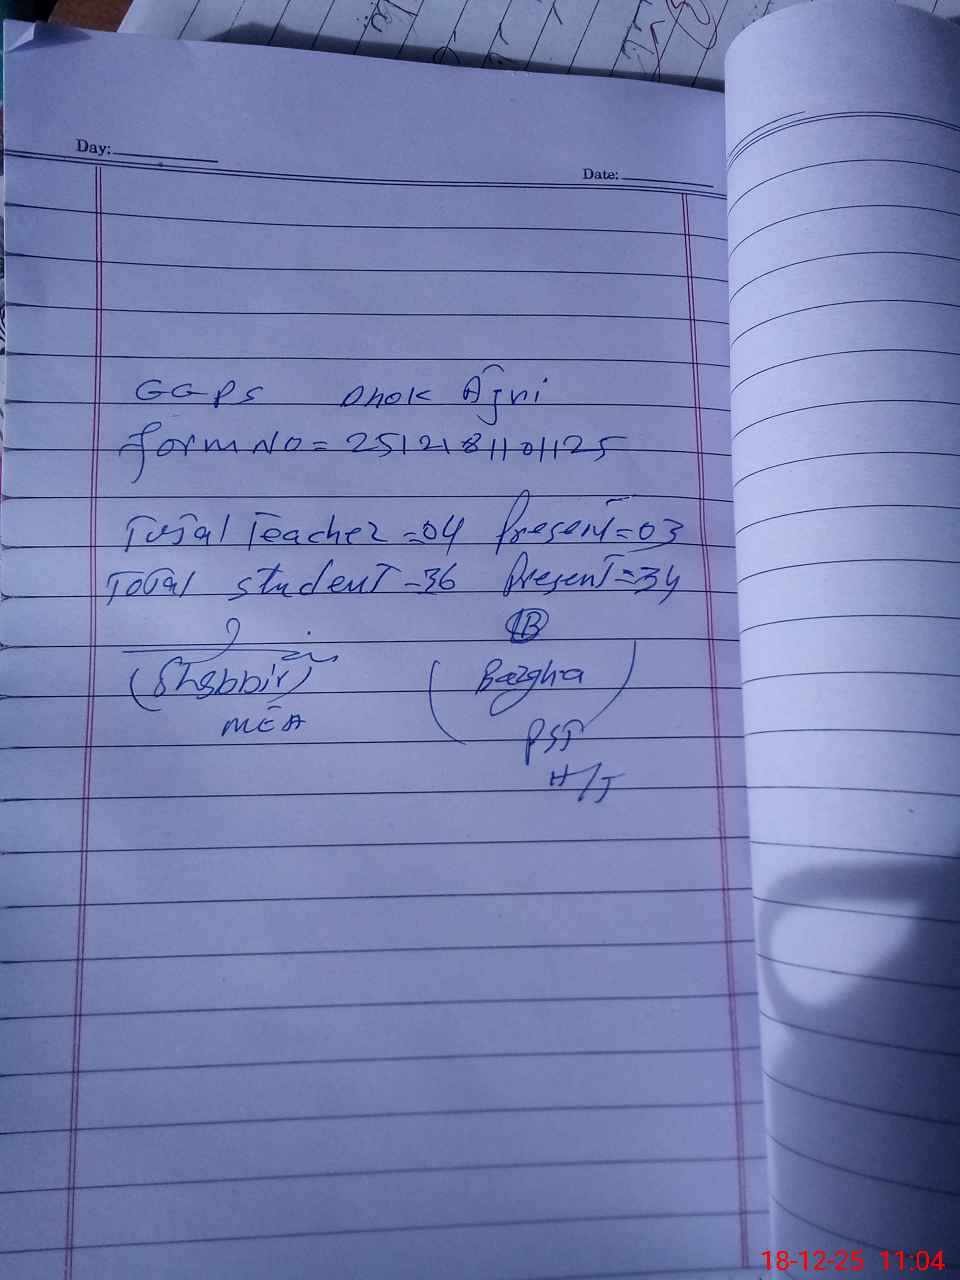 Day:
Date:
GGPS Dhok Ajri
form NO = 2512181101125
Total Teacher = 04 Present = 03
Total student = 36 Present = 34
(Shabbir)
MEA
(Bazgha)
PST
H/T
18-12-25 11:04